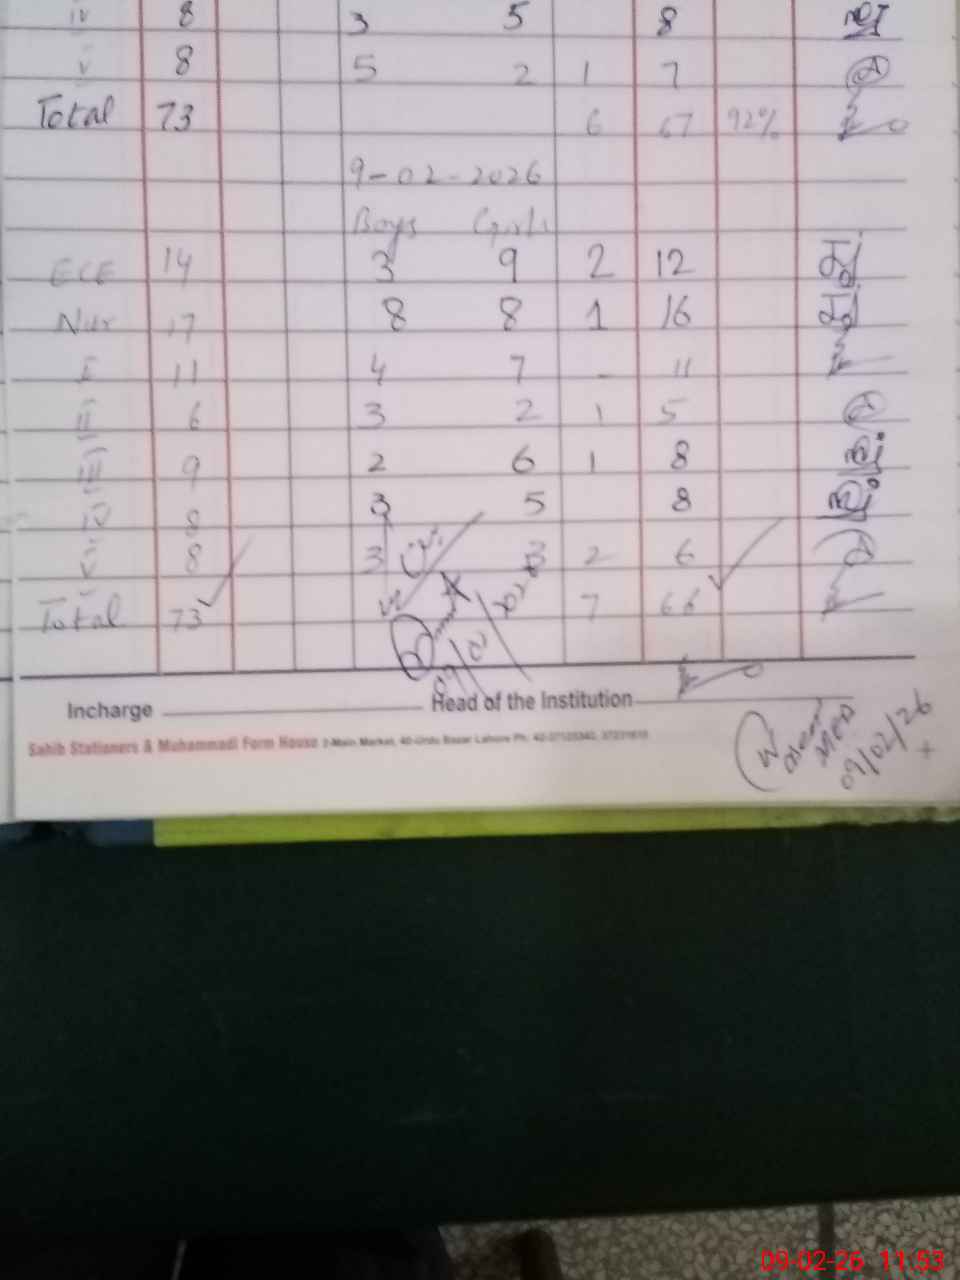 IV 8 3 5 8
V 8 5 2 1 7
Total 73 6 67 92%
9-02-2026
Boys Girls
ECE 14 3 9 2 12
Nur 17 8 8 1 16
I 11 4 7 - 11
II 6 3 2 1 5
III 9 2 6 1 8
IV 8 3 5 8
V 8 3 3 2 6
Total 73 7 66
Incharge Head of the Institution
Sahib Stationers & Muhammadi Form House 2-Main Market, 40-Urdu Bazar Lahore Ph:
09/02/26
09-02-26 11:53